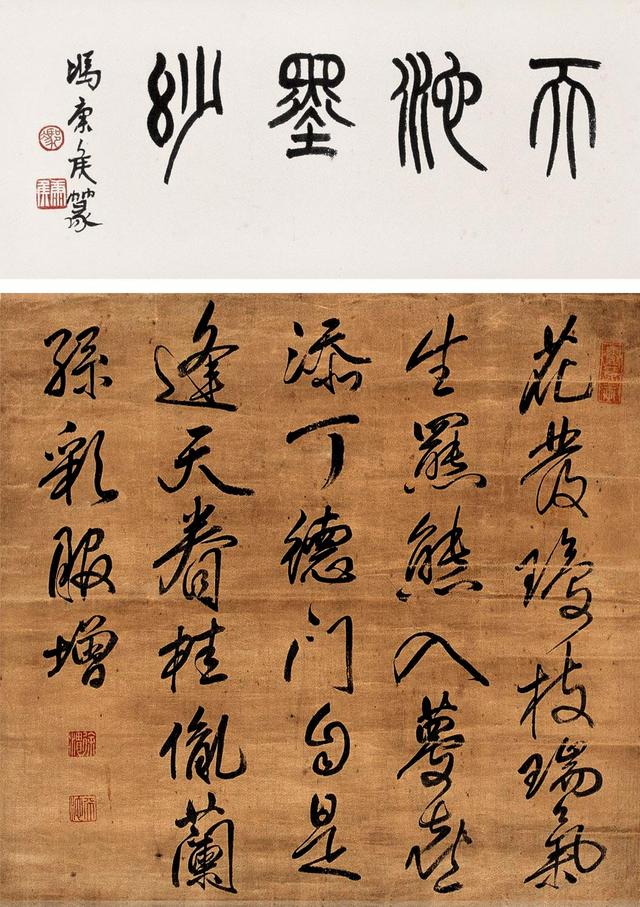 天池墨玅
馮康侯篆
花發瓊枝瑞氣
生羆熊入夢喜
添丁德門自是
逢天眷桂胤蘭
孫彩服增